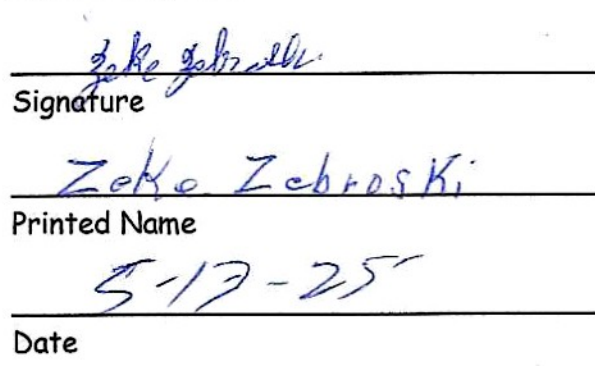 Zeke Zebroski
Signature
Zeke Zebroski
Printed Name
5-13-25
Date